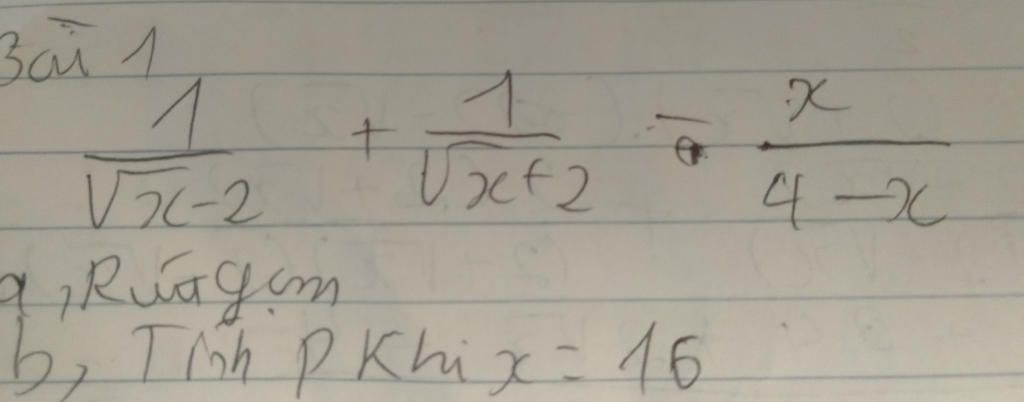 Bài 1
1/(√x-2) + 1/(√x+2) - x/(4-x)
a, Rút gọn
b, Tính P Khi x = 16